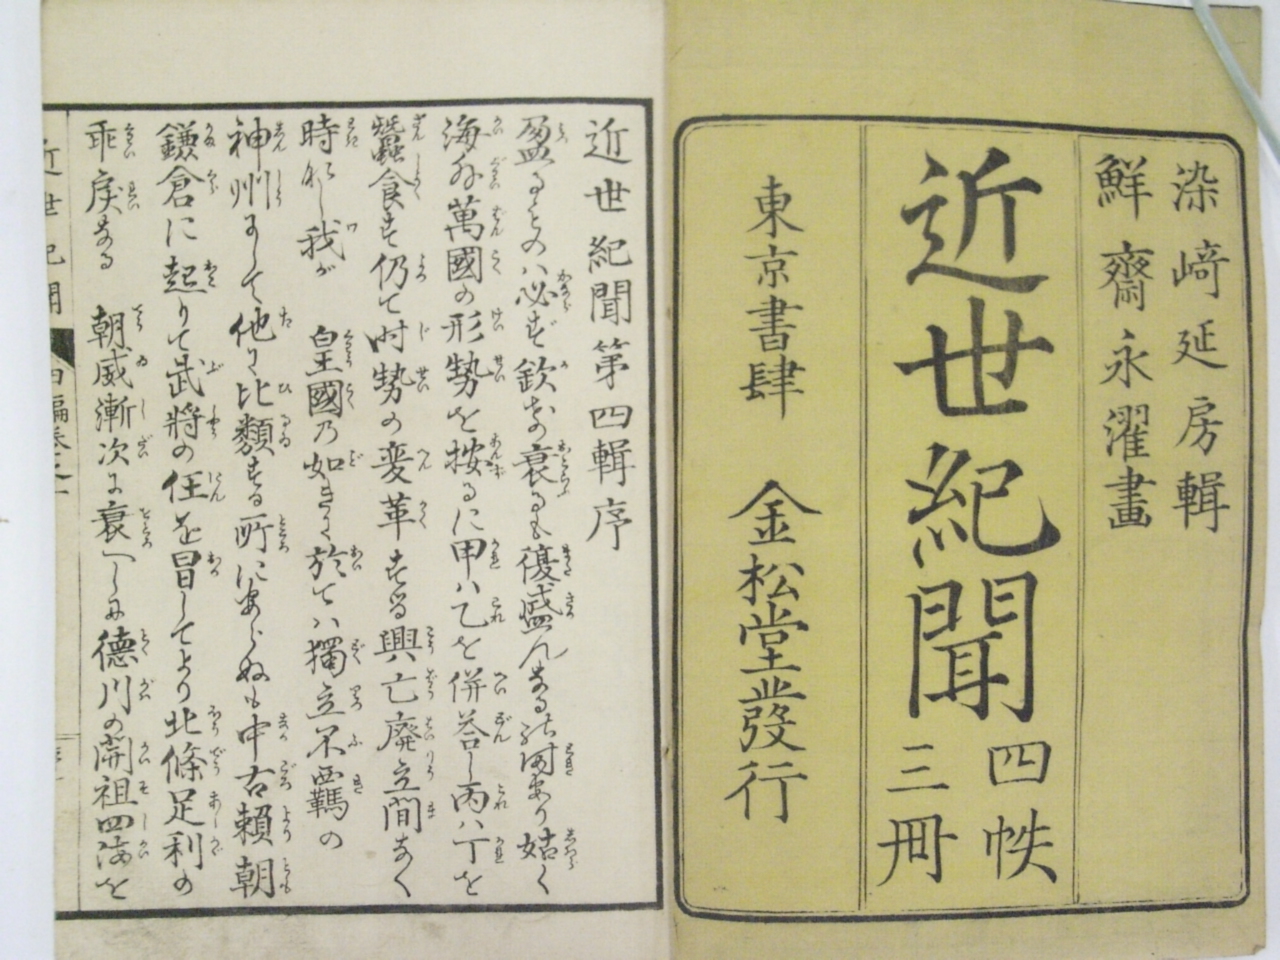 染﨑延房輯
鮮齋永濯畫
近世紀聞
四帙
三冊
東京書肆 金松堂發行
近世紀聞第四輯序
盈るものハ必ず欽お衰るも復盛んなる時あり姑く
海外萬國の形勢を按るに甲ハ乙を併呑し丙ハ丁を
蠶食す仍て時勢の変革する興亡廃立間なく
時なし我が 皇國乃如きに於てハ獨立不羈の
神州にして他に比類する所に安らぬも中古賴朝
鎌倉に起りて武將の任を冒してより北條足利の
乖戻なる 朝威漸次に衰へしに德川の開祖四海を
近世紀聞 四編巻之一